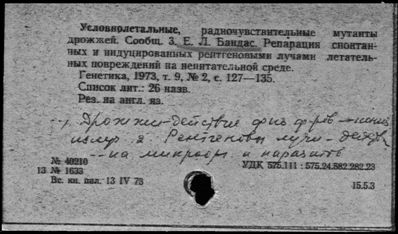 Условнолетальные, радиочувствительные мутанты
дрожжей. Сообщ. 3. Е. Л. Бандас. Репарация спонтан-
ных и индуцированных рентгеновыми лучами летатель-
ных повреждений на непитательной среде.
Генетика, 1973, т. 9, № 2, с. 127—135.
Список лит.: 26 назв.
Рез. на англ. яз.
1) Дрожжи - Действие физ
2. Рентгеновы лучи - действ
на микроорг и паразитов
№ 40210
13 № 1633
УДК 575.111 : 575.24.582.282.23
Вс. кн. пал. 13 IV 73
15.5.3